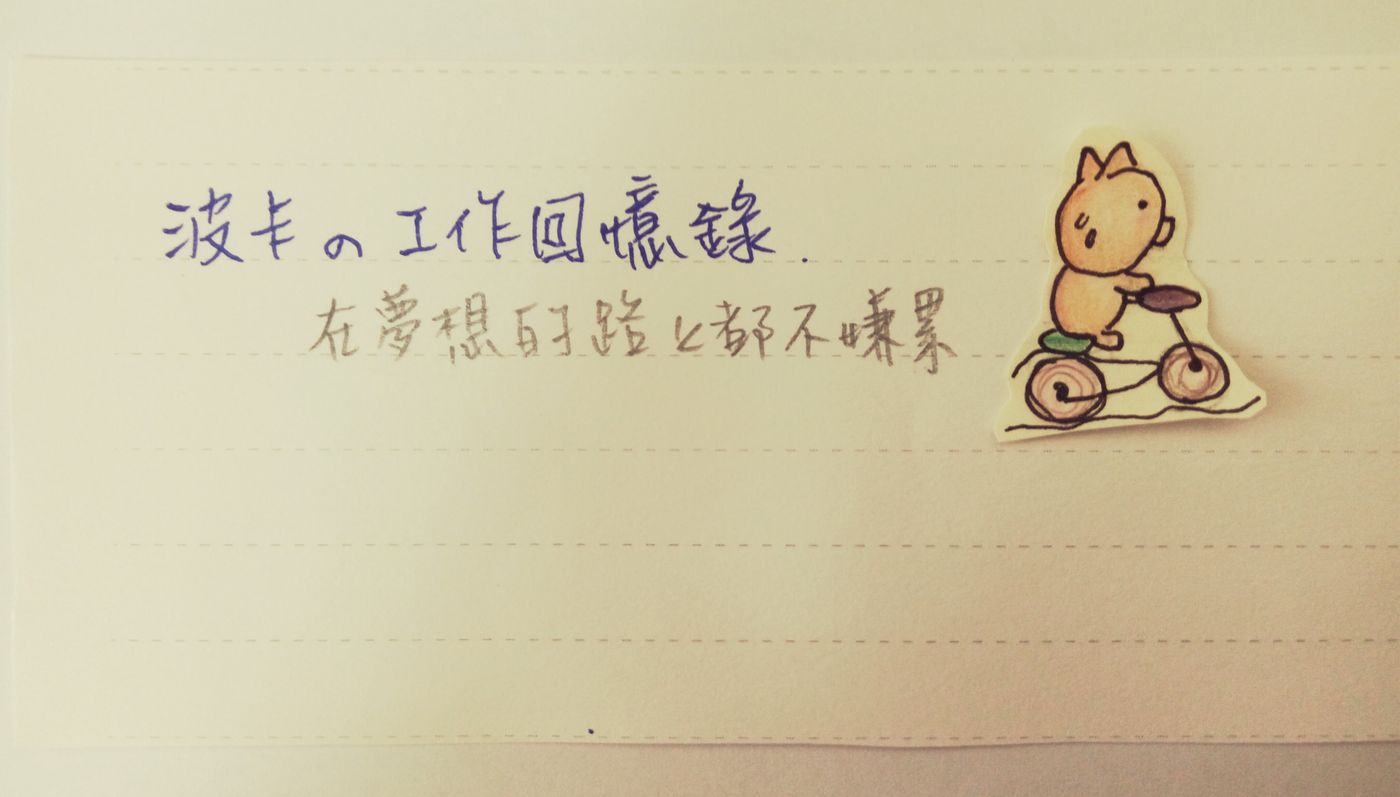 波卡の工作回憶錄.
在夢想的路上都不嫌累